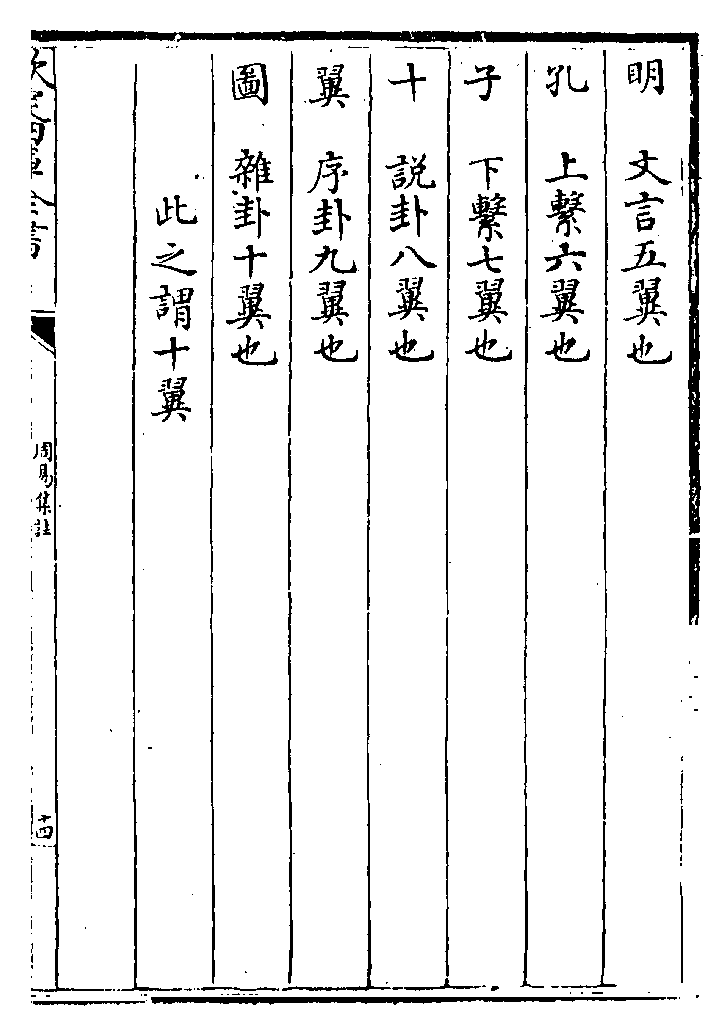 明　文言五翼也
孔　上繫六翼也
子　下繫七翼也
十　說卦八翼也
翼　序卦九翼也
圖　雜卦十翼也
此之謂十翼
欽定四庫全書
周易集註
十四